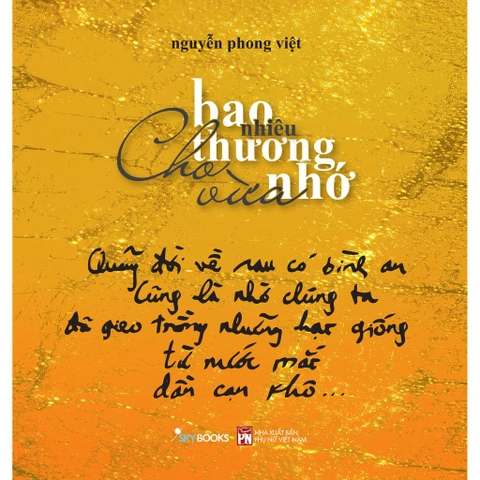 nguyễn phong việt
bao
nhiêu
thương nhớ
Cho vừa
Quãng đời về sau có bình an
Cũng là nhờ chúng ta
đã gieo trồng những hạt giống
từ nước mắt
dần cạn khô...
SKYBOOKS
PN
NHÀ XUẤT BẢN
PHỤ NỮ VIỆT NAM